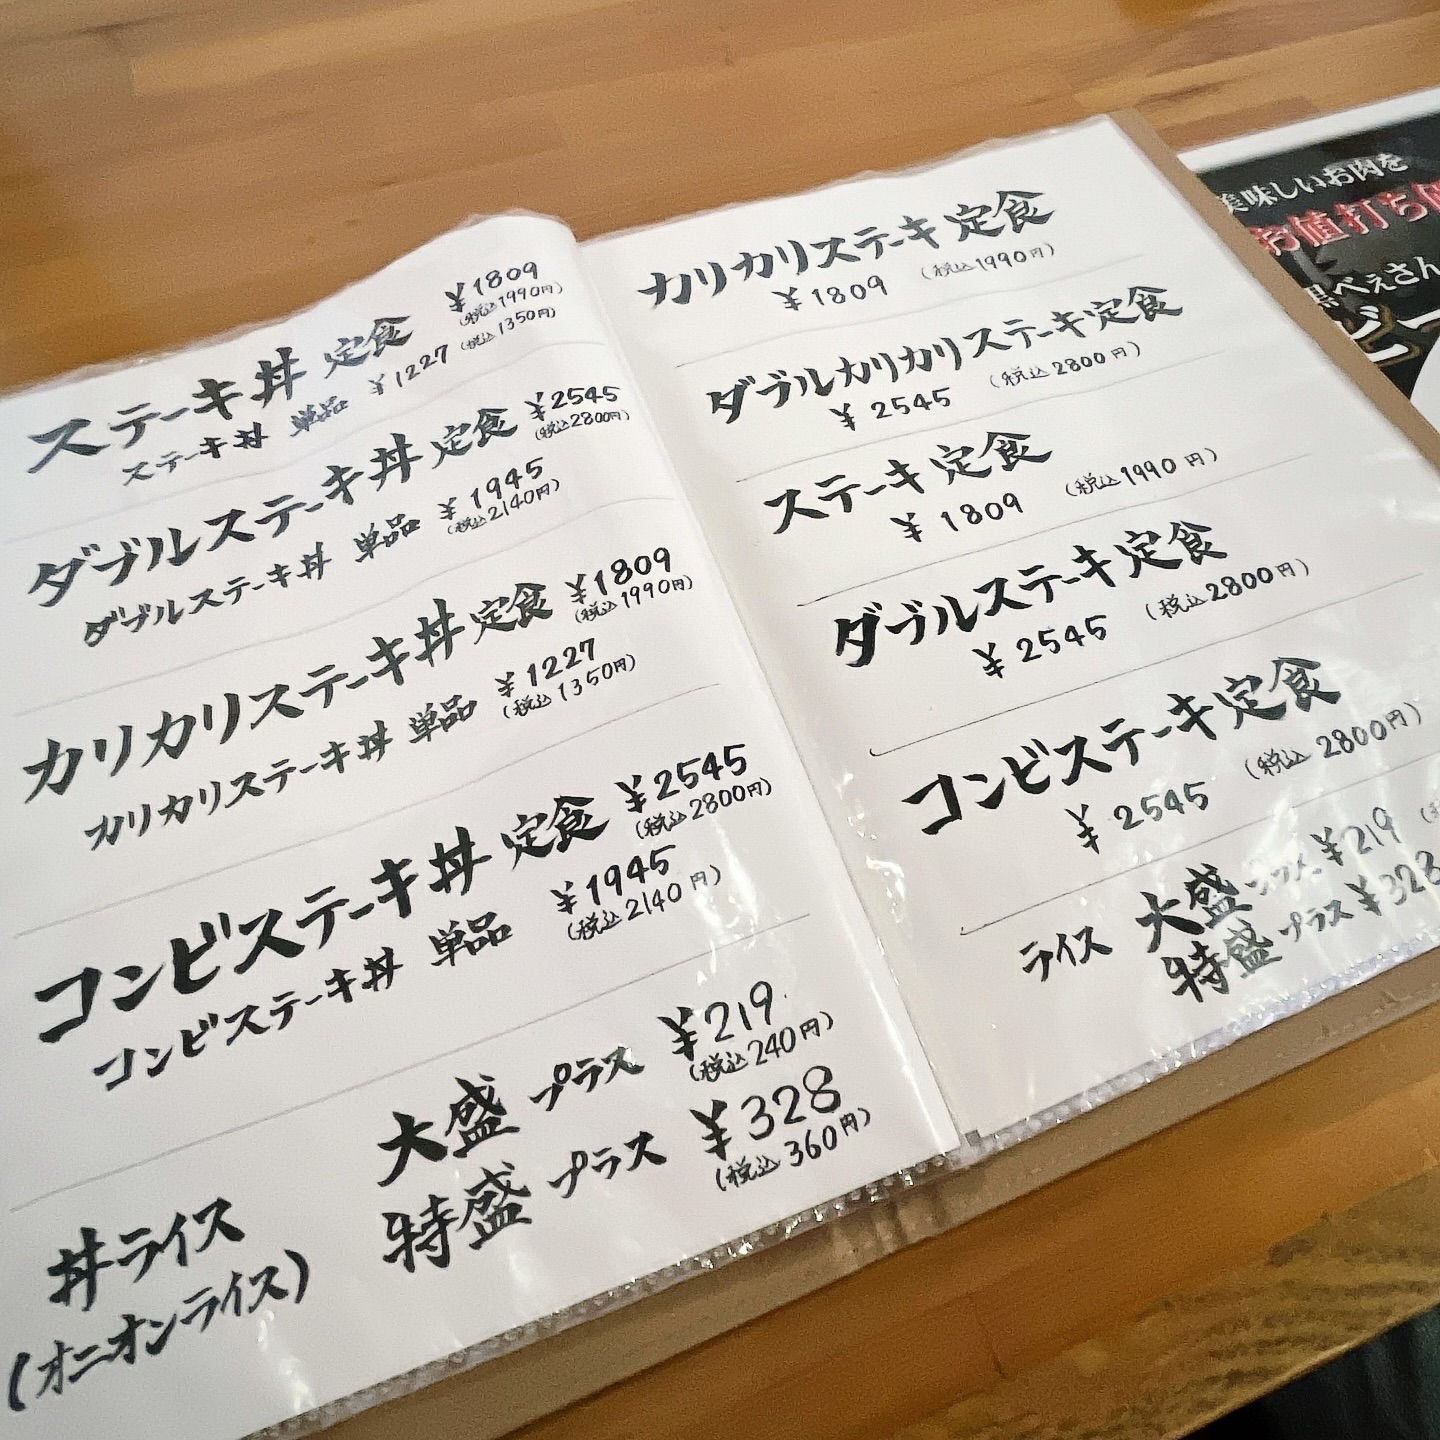 ステーキ丼 定食 ¥1809
(税込1990円)
ステーキ丼 単品 ¥1227 (税込1350円)
ダブルステーキ丼 定食 ¥2545
(税込2800円)
ダブルステーキ丼 単品 ¥1945
(税込2140円)
カリカリステーキ丼 定食 ¥1809
(税込1990円)
カリカリステーキ丼 単品 ¥1227
(税込1350円)
コンビステーキ丼 定食 ¥2545
(税込2800円)
コンビステーキ丼 単品 ¥1945
(税込2140円)
丼ライス 大盛 プラス ¥219
(税込240円)
(オニオンライス) 特盛 プラス ¥328
(税込360円)
カリカリステーキ定食
¥1809 (税込1990円)
ダブルカリカリステーキ定食
¥2545 (税込2800円)
ステーキ定食
¥1809 (税込1990円)
ダブルステーキ定食
¥2545 (税込2800円)
コンビステーキ定食
¥2545 (税込2800円)
ライス 大盛 プラス ¥219
特盛 プラス ¥328
美味しいお肉を
お値打ち
黒べぇさん
ビー